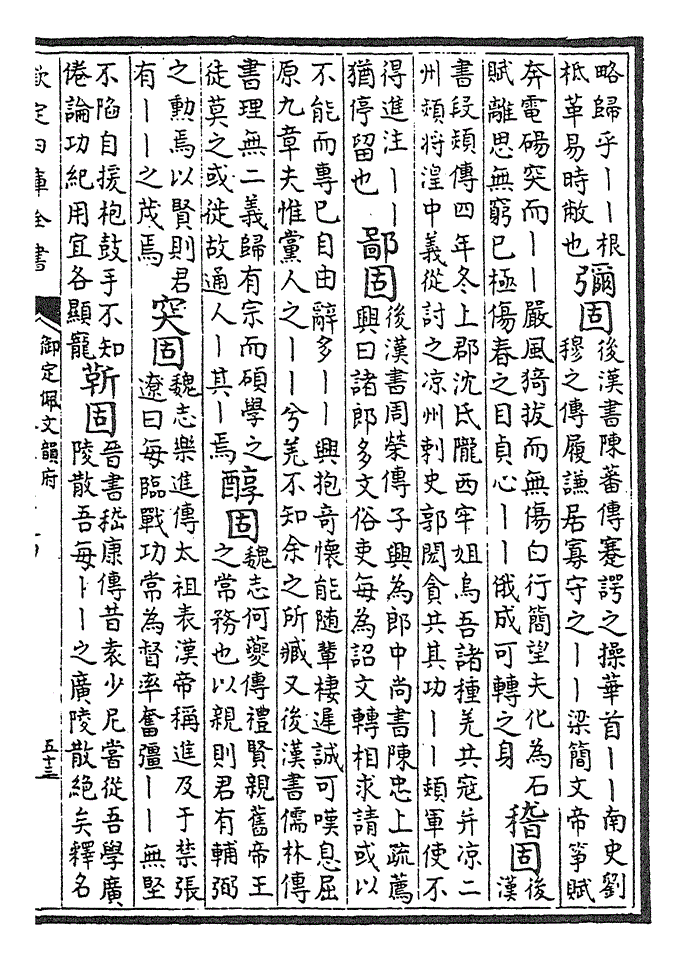 略歸乎丨丨根
柢革易時敝也
彌固
後漢書陳蕃傳蹇諤之操華首丨丨南史劉
穆之傳履謙居寡守之丨丨梁簡文帝箏賦
奔電碭突而丨丨嚴風猗拔而無傷白行簡望夫化為石
賦離思無窮已極傷春之目貞心丨丨俄成可轉之身
稽固
後
漢
書段熲傳四年冬上郡沈氐隴西牢姐烏吾諸種羌共寇并凉二
州熲將湟中義從討之凉州刺史郭閎貪共其功丨丨熲軍使不
得進注丨丨
猶停留也
鄙固
後漢書周榮傳子興為郎中尚書陳忠上疏薦
興曰諸郎多文俗吏每為詔文轉相求請或以
不能而專已自由辭多丨丨興抱竒懷能随輩棲遲誠可嘆息屈
原九章夫惟黨人之丨丨兮羌不知余之所臧又後漢書儒林傳
書理無二義歸有宗而碩學之
徒莫之或徙故通人丨其丨焉
醇固
魏志何夔傳禮賢親舊帝王
之常務也以親則君有輔弼
之勲焉以賢則君
有丨丨之茂焉
突固
魏志樂進傳太祖表漢帝稱進及于禁張
遼曰每臨戰功常為督率奮彊丨丨無堅
不陷自援枹鼓手不知
倦論功紀用宜各顯寵
靳固
晉書嵇康傳昔袁少尼嘗從吾學廣
陵散吾每丨丨之廣陵散絶矣釋名
欽定四庫全書
御定佩文韻府
五十三